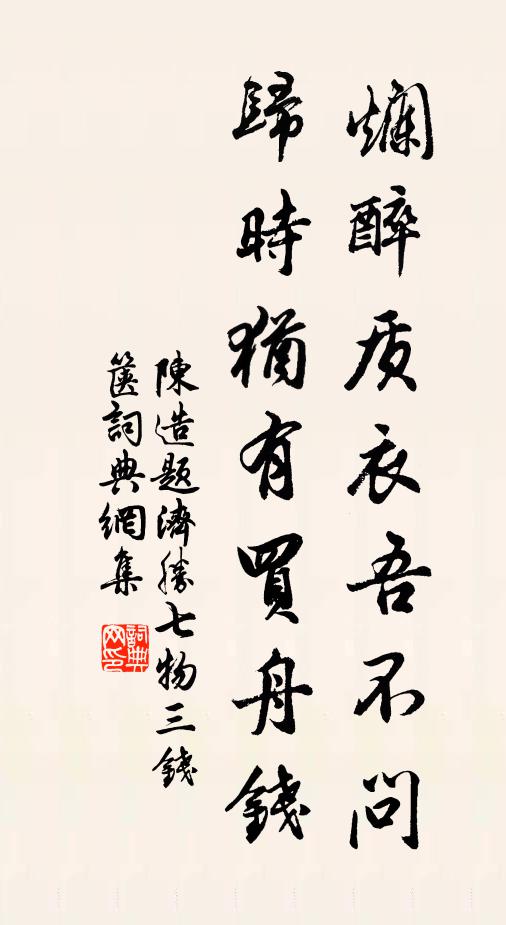 爛醉质衣吾不問
歸時猶有買舟錢
陳造題濟勝七物三錢
箧詞典網集
詞典网印